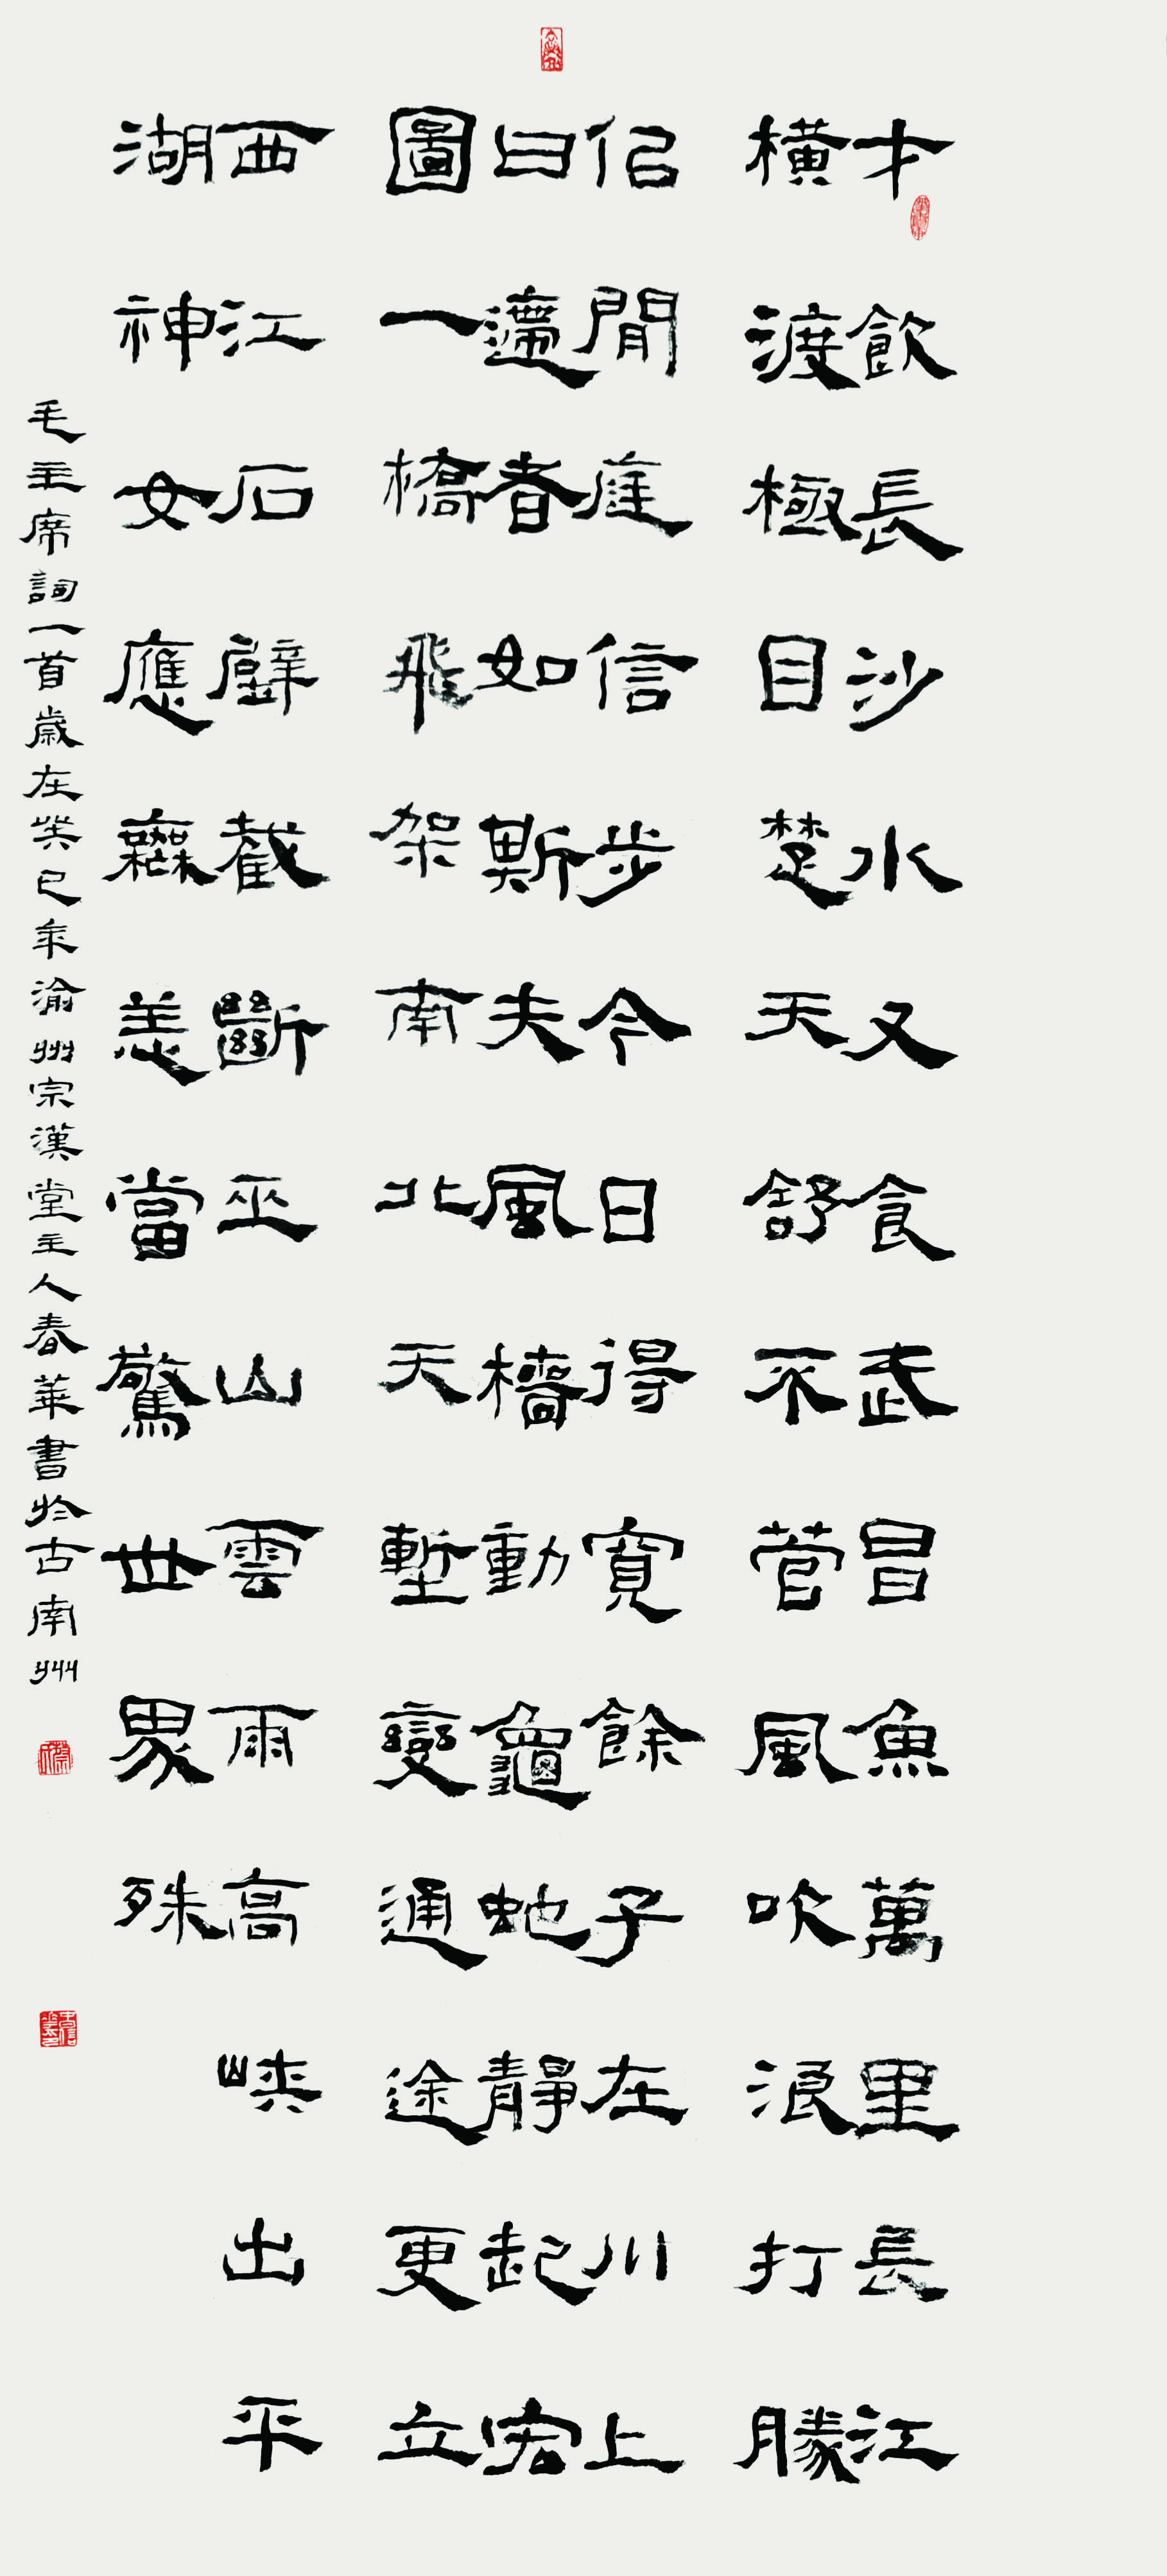 才飲長沙水又食武昌魚萬里長江
橫渡極目楚天舒不管風吹浪打勝
佀閒庭信步今日得寬餘子在川上
曰遰者如斯夫風檣動龜蛇靜起宏
圖一橋飛架南北天塹變通途更立
西江石壁截斷巫山雲雨高峽出平
湖神女應無恙當驚世界殊
毛主席詞一首歲在癸巳年渝州宗漢堂主人春華書於古南州